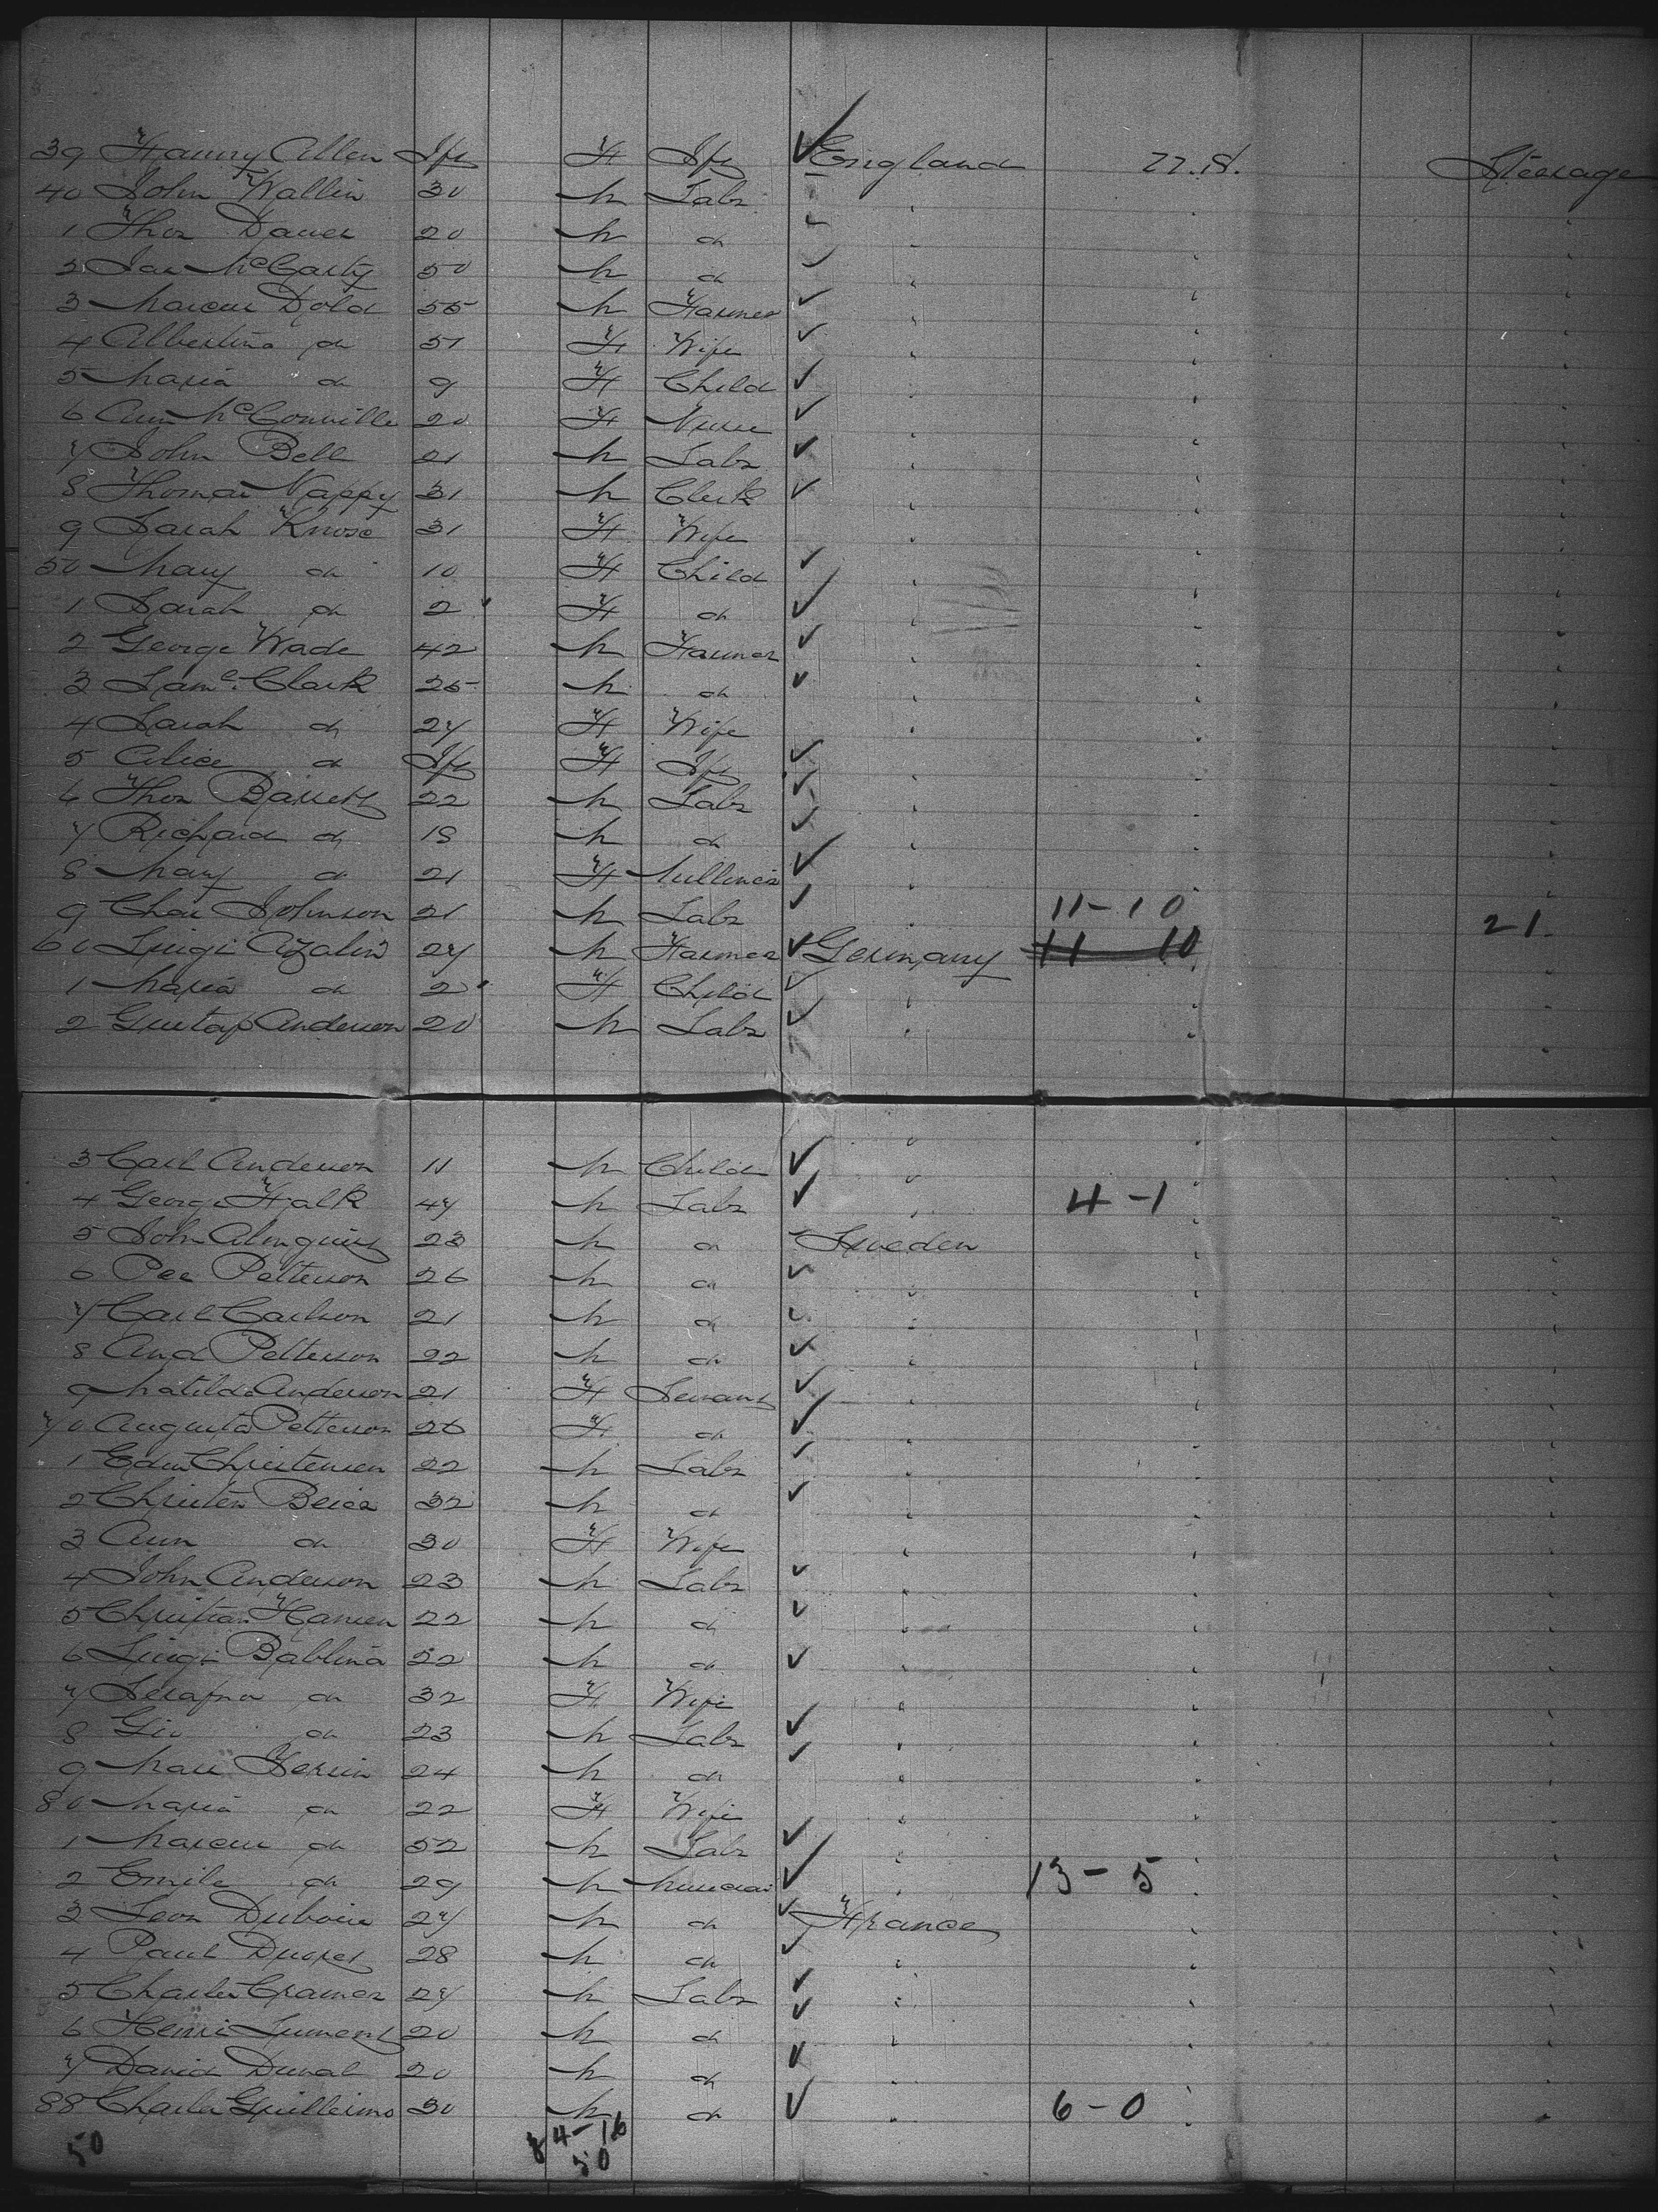 39 Fanny Allen Inf F Inf England U.S. Steerage
40 John Wallin 30 M Labr " " "
1 Thos Dauer 20 M do " " "
2 Jas McCarty 50 M do " " "
3 Marcus Dold 55 M Farmer " " "
4 Albertina do 51 F Wife " " "
5 Maria do 9 F Child " " "
6 Ann McConville 20 F Nurse " " "
7 John Bell 21 M Labr " " "
8 Thomas Nappy 31 M Clerk " " "
9 Sarah 31 F Wife " " "
50 Mary do 10 F Child " " "
1 Sarah do 2 F do " " "
2 George Wade 42 M Farmer " " "
3 Saml. Clark 25 M do " " "
4 Sarah do 27 F Wife " " "
5 Alice do Inf F Inf " " "
6 Thos Barrett 22 M Labr " " "
7 Richard do 18 M do " " "
8 Mary do 21 F Milliner " " "
9 Chas Johnson 21 M Labr " 11-10 " 21
60 Luigi Azalin 27 M Farmer Germany 11 10
1 Maria do 2 F Child " " "
2 Gustaf Anderson 20 M Labr " " "
3 Carl Anderson 11 M Child " " "
4 George Falk 47 M Labr " 4-1 " "
5 John Almquist 23 M do Sweden " "
6 Per Petterson 26 M do " " "
7 Carl Carlson 21 M do " " "
8 And Petterson 22 M do " " "
9 Matilda Anderson 21 F Servant " " "
70 Augusta Petterson 26 F do " " "
1 Christensen 22 M Labr " " "
2 Christen Beier 32 M do " " "
3 Ann do 30 F Wife " " "
4 John Anderson 23 M Labr " " "
5 Christian Hansen 22 M do " " "
6 Luigi Bablina 22 M do " " "
7 do 32 F Wife " " "
8 Gio do 23 M Labr " " "
9 24 M do " " "
80 Maria do 22 F Wife " " "
1 Marcus do 52 M Labr " " "
2 Emile do 29 M Musician " 13-5 " "
3 Leon Dubois 27 M do France " "
4 Paul 28 M do " " "
5 Charles Cramer 27 M Labr " " "
6 Henri 20 M do " " "
7 David Duval 20 M do " " "
88 Charles Guillermo 30 M do " 6-0 " "
50 34-16
50